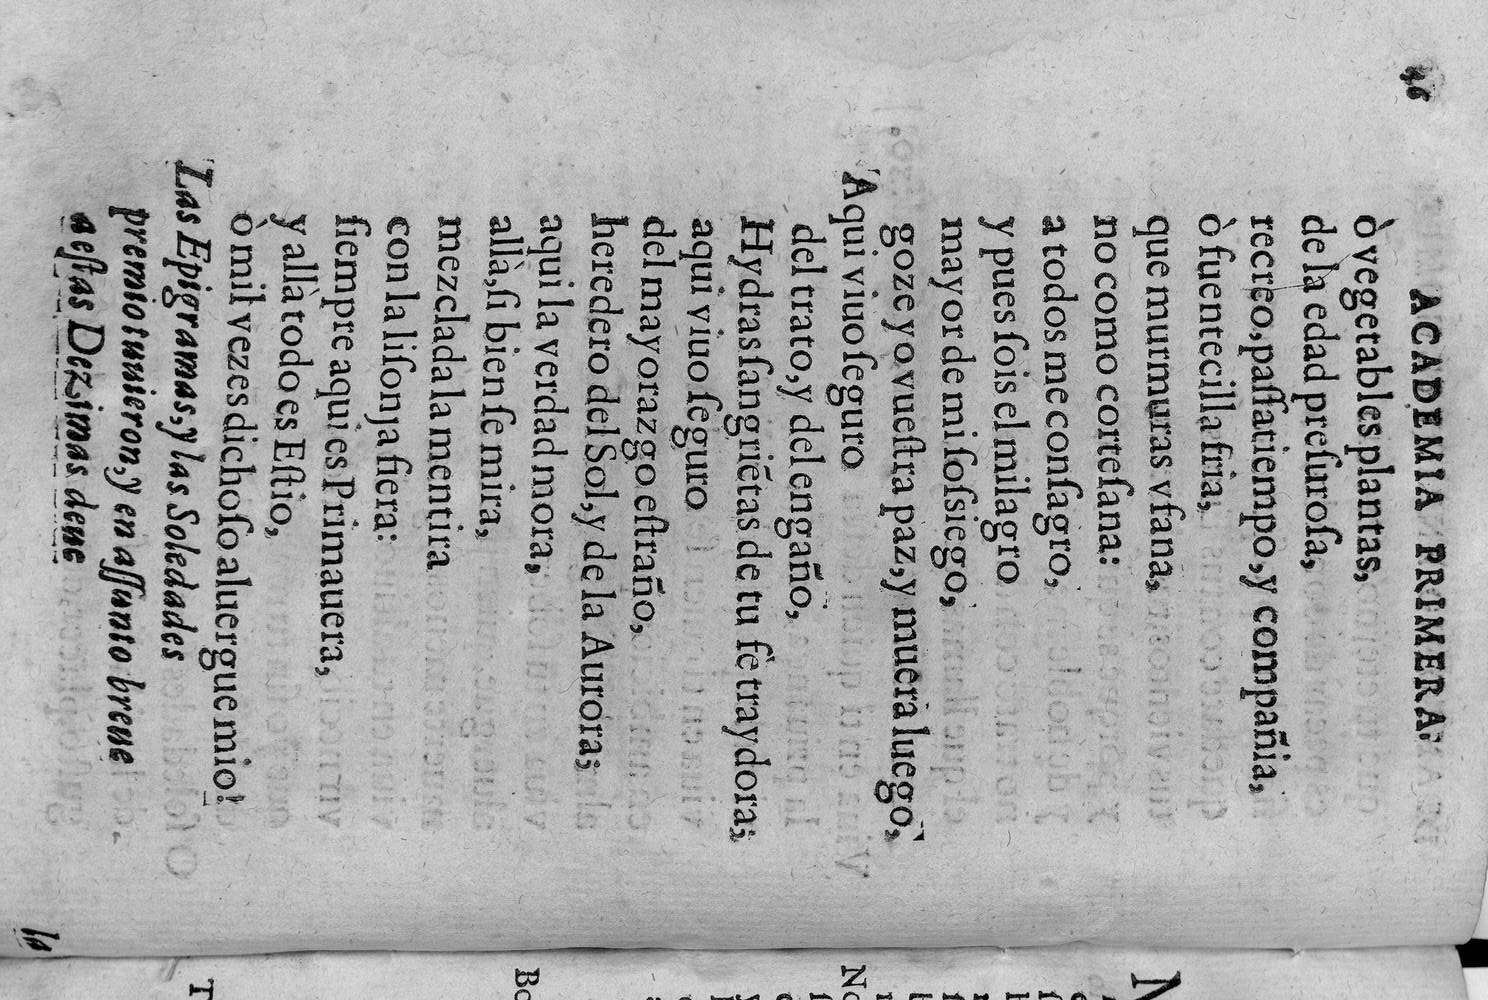 46
ACADEMIA PRIMERA.
ò vegetables plantas,
de la edad presurosa,
recreo, passatiempo, y compañia,
ò fuentecilla fria,
que murmuras vfana,
no como cortesana:
a todos me consagro,
y pues sois el milagro
mayor de mi sossiego,
goze yo vuestra paz, y muera luego,
Aqui viuo seguro
del trato, y del engaño,
Hydra sangriẽtas de tu fè traydora;
aqui viuo seguro
del mayorazgo estraño,
heredero del Sol, y de la Aurora;
aqui la verdad mora,
allà, si bien se mira,
mezclada la mentira
con la lisonja fiera:
siempre aqui es Primauera,
y allà todo es Estio,
ò mil vezes dichoso aluergue mio!
Las Epigramas, y las Soledades
premio tuuieron, y en assunto breue
a estas Dezimas deue
la